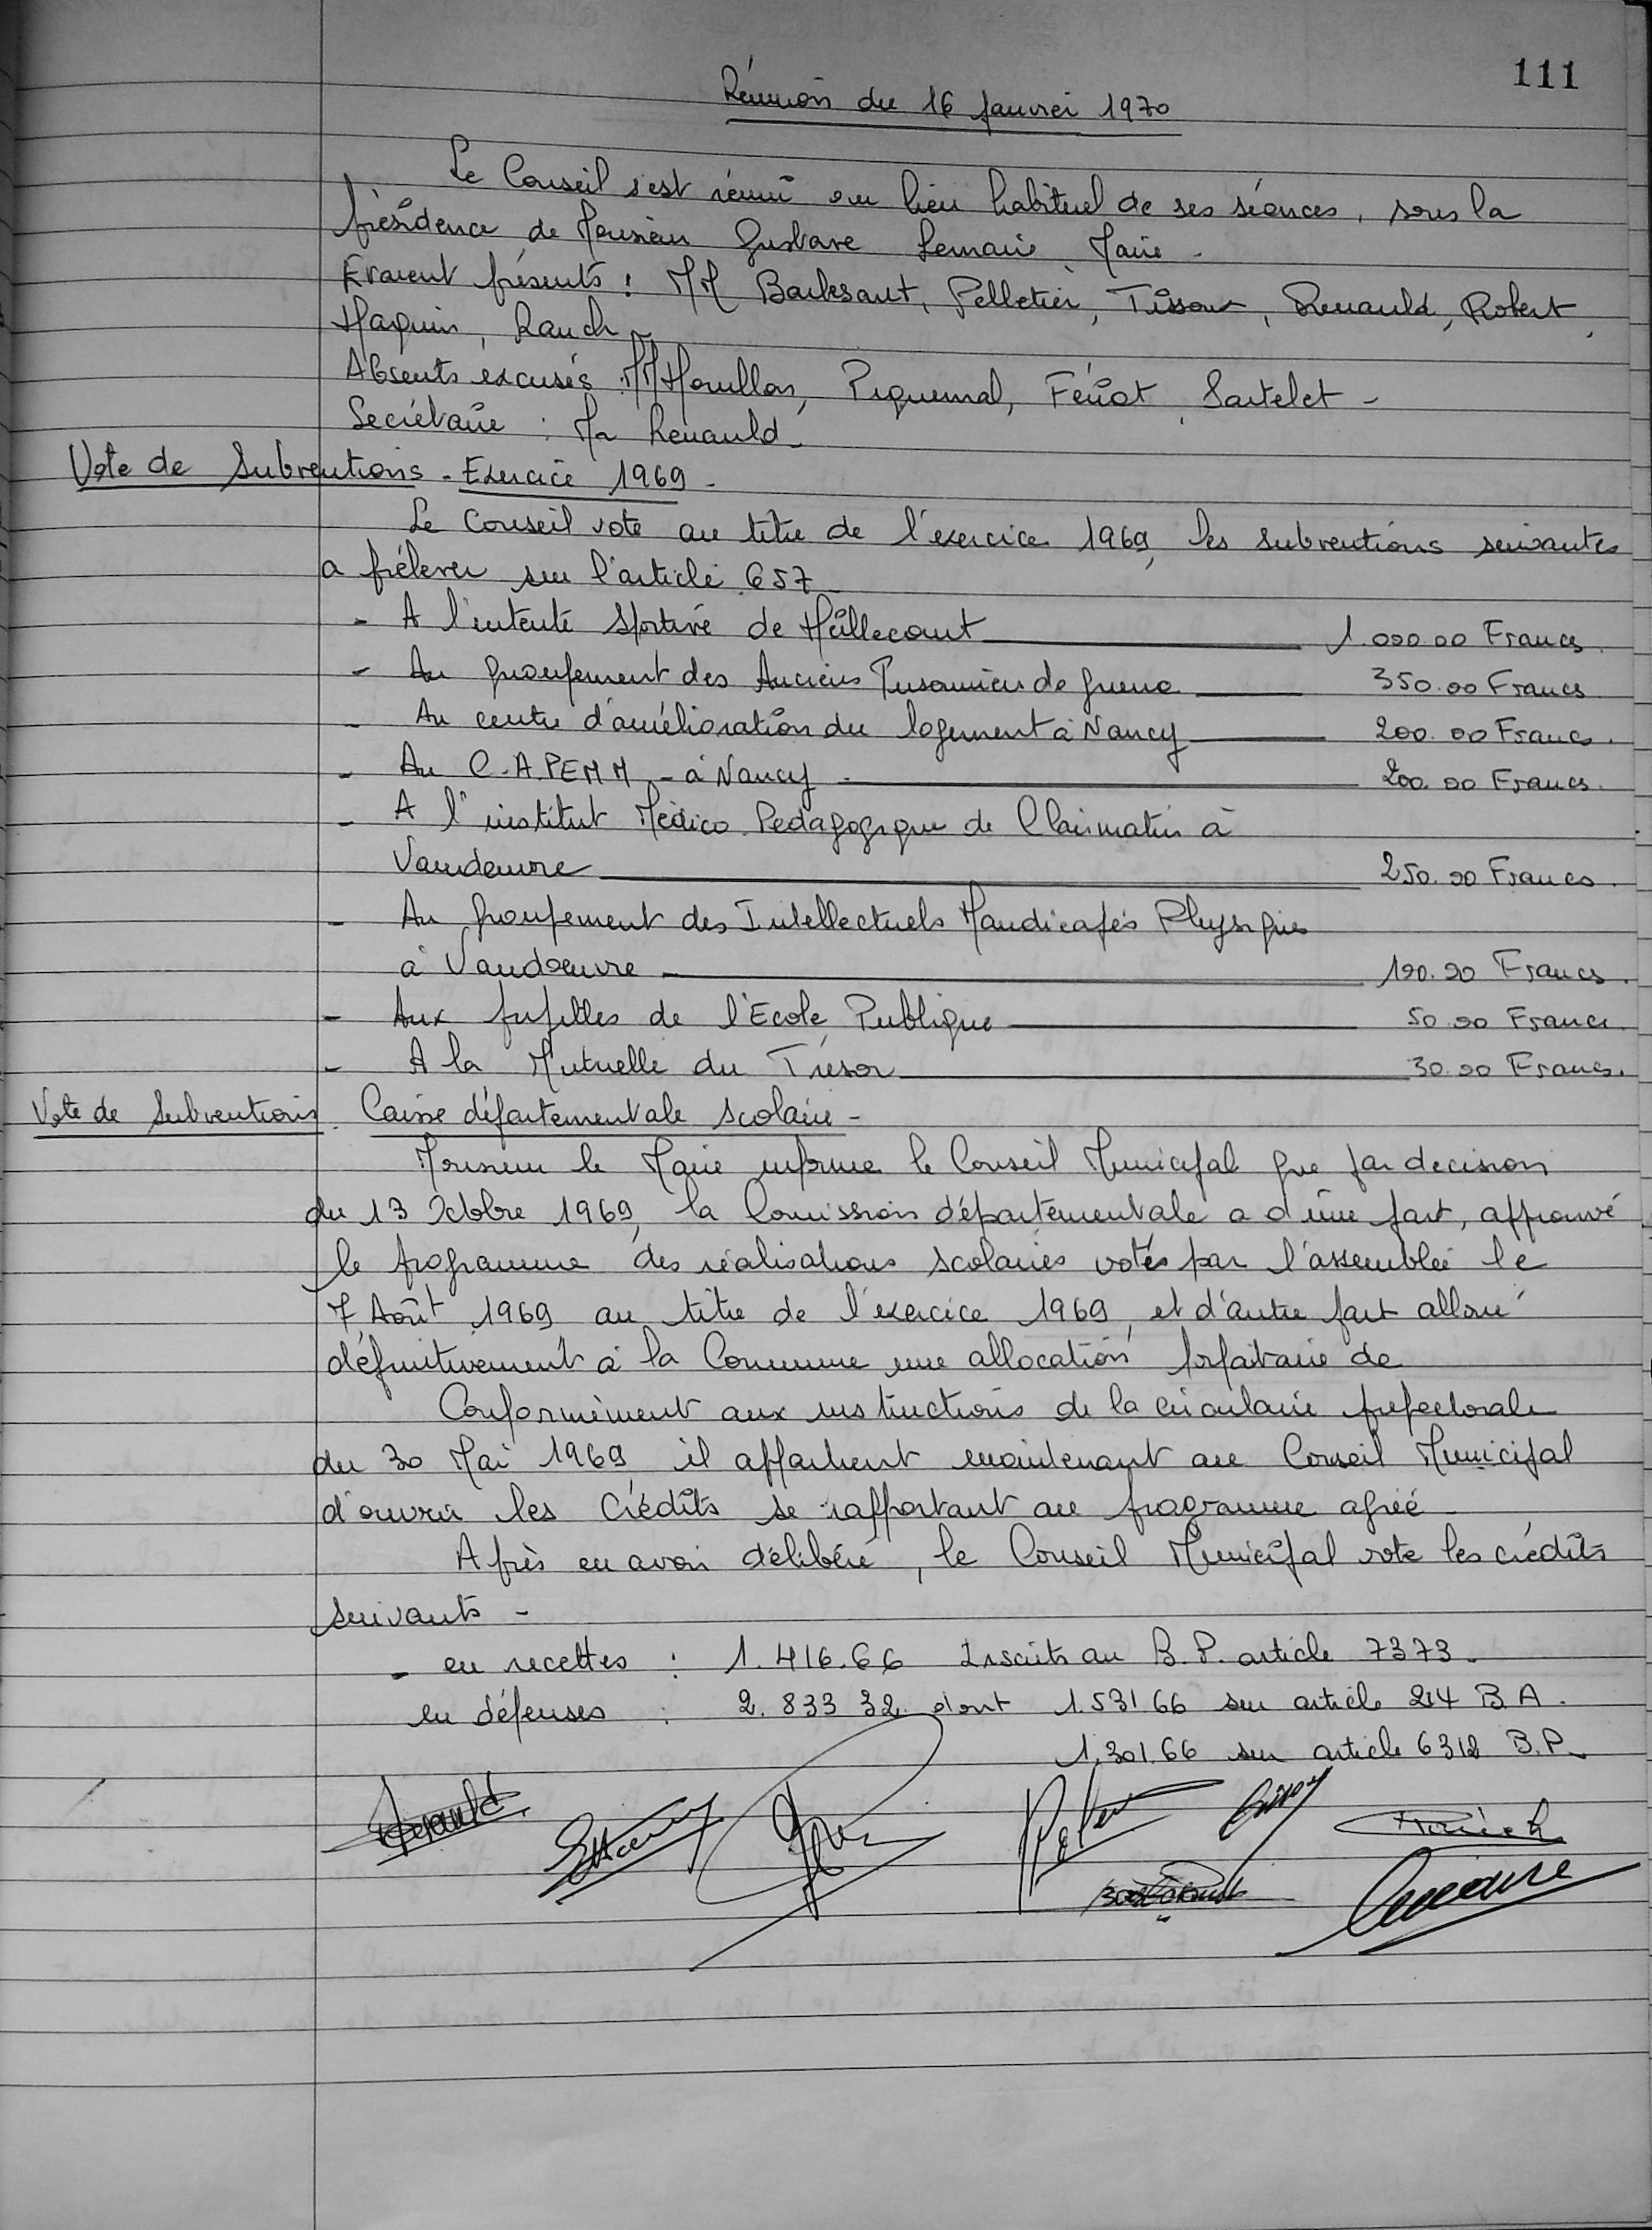 111
Réunion du 16 Janvier 1970
Le Conseil s'est réuni au lieu habituel de ses séances, sous la
présidence de Monsieur Gustave Lemaire Maire.
Etaient présents : MM Barbesant, Pelletier, Tissoux, Renauld, Robert,
Haquin, Rauch.
Absents excusés MM Houillon, Piquemal, Fériot, Sartelet -
Secrétaire : Mr Renauld -
Vote de Subventions - Exercice 1969 -
Le Conseil vote au titre de l'exercice 1969, les subventions suivantes
a prélever sur l'article 657
- A l'entente Sportive de Heillecourt 1.000.00 Francs.
- Au groupement des Anciens Prisonniers de guerre 350.00 Francs
- Au centre d'amélioration du logement à Nancy 200.00 Francs.
- Au C.A.PEMM - à Nancy - 200.00 Francs.
- A l'institut Médico-Pédagogique de Clairmatin à
Vandoeuvre 250.00 Francs.
- Au groupement des Intellectuels Handicapés Physiques
à Vandoeuvre 100.00 Francs.
- Aux pupilles de l'Ecole Publique 50.00 Francs.
- A la Mutuelle du Trésor 30.00 Francs.
Vote de Subventions. Caisse départementale scolaire -
Monsieur le Maire informe le Conseil Municipal que par decision
du 13 Octobre 1969, la Comission départementale a d'une part, approuvé
le programme des réalisations scolaires votés par l'assemblée le
7 Août 1969 au titre de l'exercice 1969, et d'autre part alloué
définitivement à la Commune une allocation forfaitaire de
Conformément aux instructions de la circulaire préfectorale
du 30 Mai 1969 il appartient maintenant au Conseil Municipal
d'ouvrir les Crédits se rapportant au programme agréé.
Après en avoir délibéré, le Conseil Municipal vote les crédits
suivants -
- en recettes : 1.416.66 Inscrits au B.P. article 7373.
en dépenses : 2.833 32 dont 1.531 66 sur article 214 B.A.
1.301.66 sur article 6312 B.P.
Renauld
Robert
Rauch
Lemaire